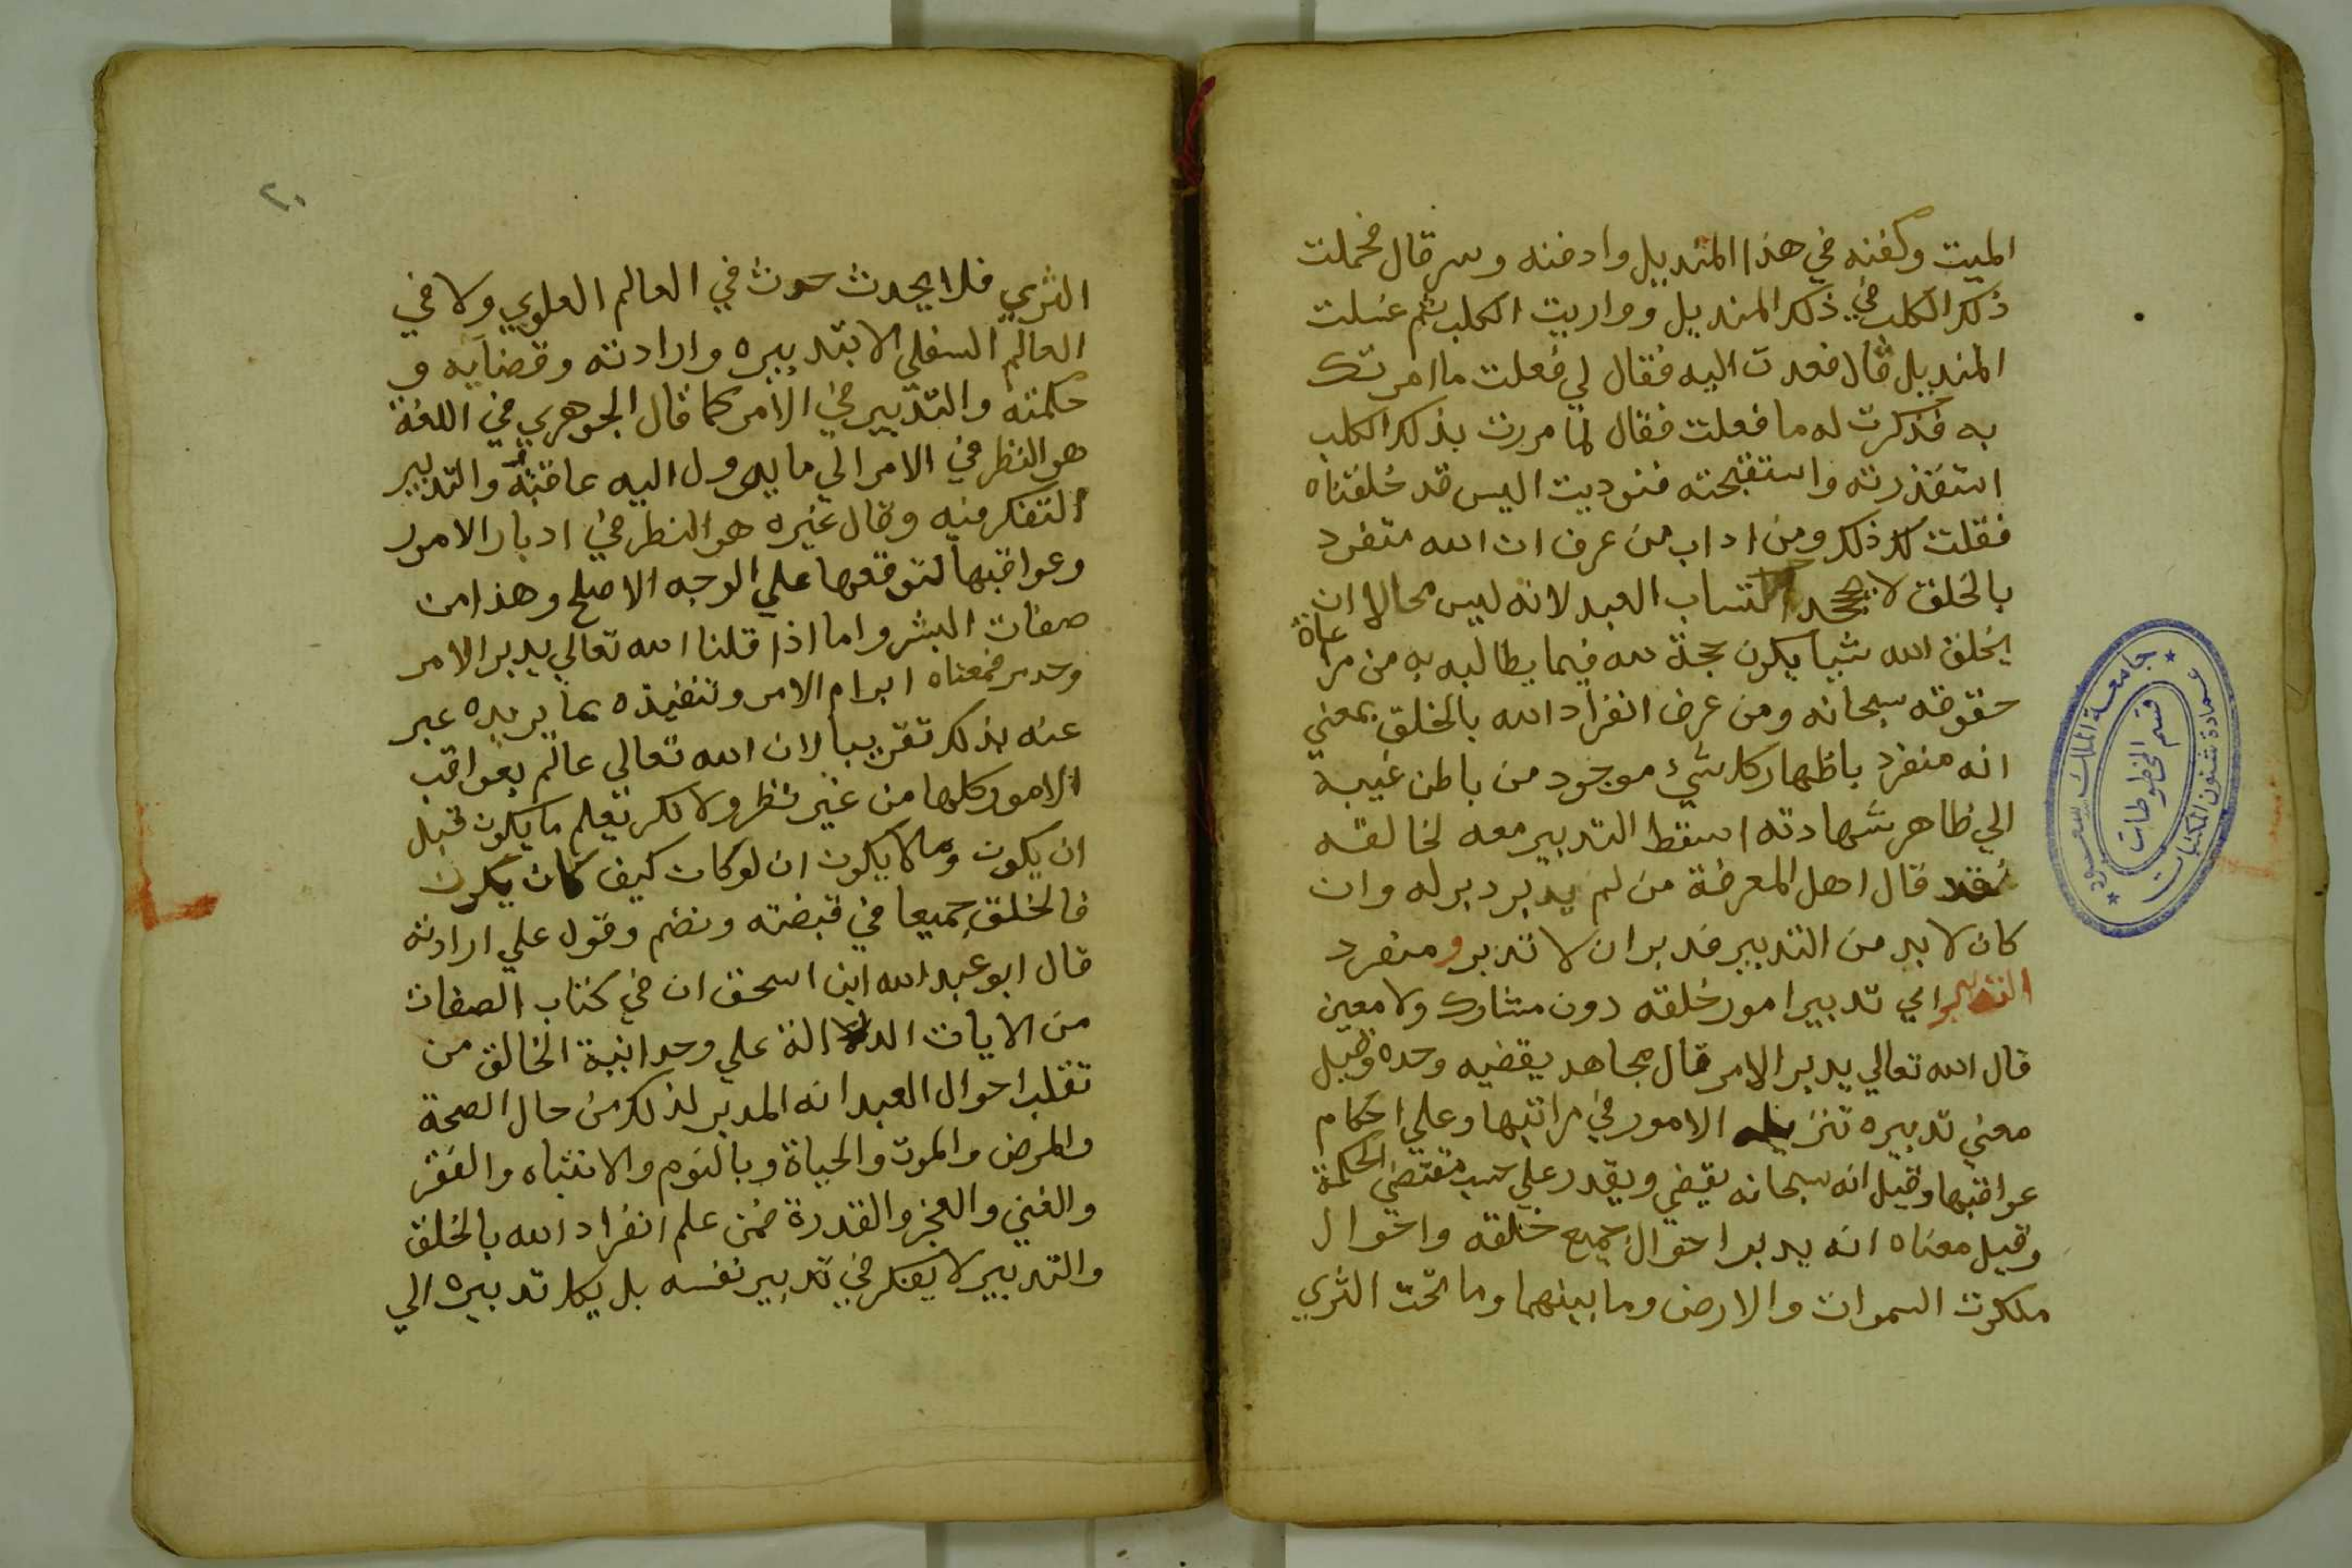 الميت وكفنه في هذا المنديل وادفنه وسر قال فحملت
ذلك الكلب في ذلك المنديل وواريت الكلب ثم غسلت
المنديل قال فعدت اليه فقال لي فعلت ما امرتك
به فذكرت له ما فعلت فقال لما مررت بذلك الكلب
استقذرته واستقبحته فنوديت اليس قد خلقناه
فقلت لك ذلك ومن اداب من عرف ان الله متفرد
بالخلق لا يجحد اكتساب العبد لانه ليس محالا ان
يخلق الله شيا يكون حجة لله فيما يطالبه به من مراعاة
حقوقه سبحانه ومن عرف انفراد الله بالخلق بمعني
انه منفرد باظهار كل شيء موجود من باطن غيبه
الي ظاهر شهادته اسقط التدبير معه لخالقه
فقد قال اهل المعرفة من لم يدبر دبر له وان
كان لا بد من التدبير فدبر ان لا تدبر ومنفرد
التدبير اي تدبير امور خلقه دون مشارك ولا معين
قال الله تعالي يدبر الامر قال مجاهد يقضيه وحده وقيل
معني تدبيره تنزيله الامور في مراتبها وعلي احكام
عواقبها وقيل انه سبحانه يقضي ويقدر علي حسب مقتضي الحكمة
وقيل معناه انه يدبر احوال جميع خلقه واحوال
ملكوت السموات والارض وما بينهما وما تحت الثري
جامعة الملك سعود
عمادة شئون المكتبات
قسم المخطوطات
٢٠
الثري فلا يحدث حدث في العالم العلوي ولا في
العالم السفلي الا بتدبيره وارادته وقضايه و
حكمته والتدبير في الامر كما قال الجوهري في اللغة
هو النظر في الامر الي ما يوول اليه عاقبته والتدبير
التفكر فيه وقال غيره هو النظر في ادبار الامور
وعواقبها لتوقعها علي الوجه الاصلح وهذا من
صفات البشر واما اذا قلنا الله تعالي يدبر الامر
وحده فمعناه ابرام الامر وتنفيذه بما يريده عبر
عنه بذلك تقريبا لان الله تعالي عالم بعواقب
الامور كلها من غير نظر ولا فكر يعلم ما يكون قبل
ان يكون وما لا يكون ان لو كان كيف كان يكون
فالخلق جميعا في قبضته وتضم وقول علي ارادته
قال ابو عبد الله ابن اسحق ان في كتاب الصفات
من الايات الدالة علي وحدانية الخالق من
تقلب احوال العبد انه المدبر لذلك من حال الصحة
والمرض والموت والحياة وبالنوم والانتباه والفقر
والغني والعجز والقدرة فمن علم انفراد الله بالخلق
والتدبير لا يفكر في تدبير نفسه بل يكل تدبيره الي